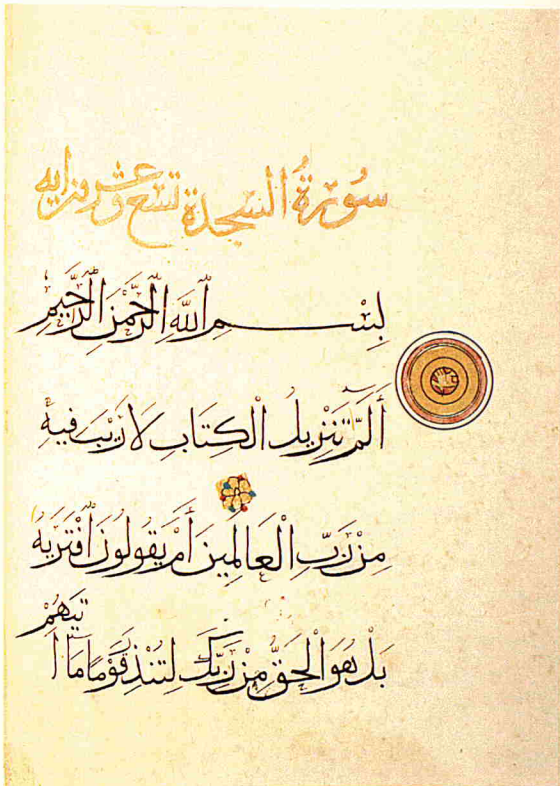 سُورَةُ السَّجدة تسع وعشرون ايه
بِسْمِ اللَّهِ الرَّحْمَنِ الرَّحِيمِ
أَلَمّ تَنْزِيلُ الْكِتَابِ لَا رَيْبَ فِيهِ
مِنْ رَبِّ الْعَالَمِينَ أَمْ يَقُولُونَ افْتَرَيهُ
بَلْ هُوَ الْحَقُّ مِنْ رَبِّكَ لِتُنْذِرَ قَوْمًا مَا أَ
تَيهُمْ